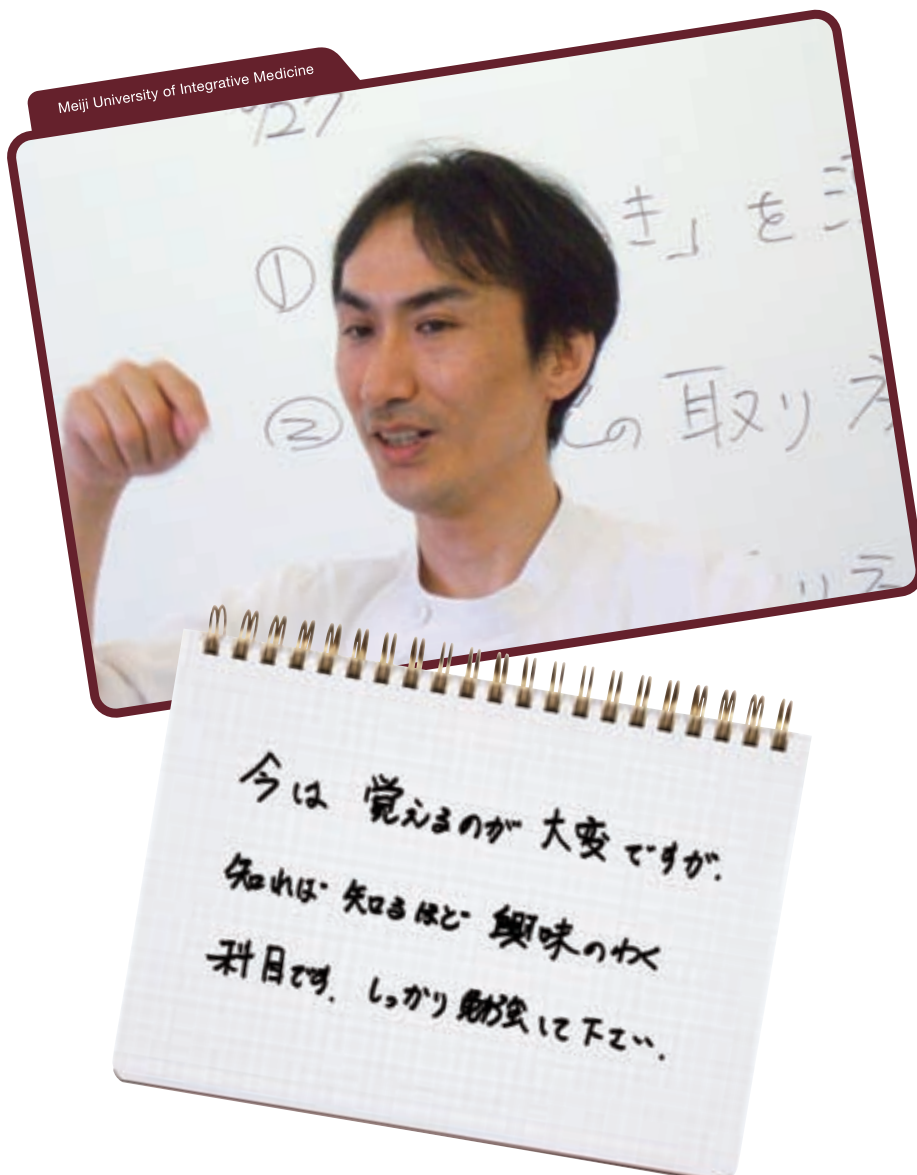 Meiji University of Integrative Medicine
①
き」を
②
の取り
今は 覚えるのが 大変ですが、
知れば 知るほど 興味のわく
科目です。しっかり勉強して下さい。